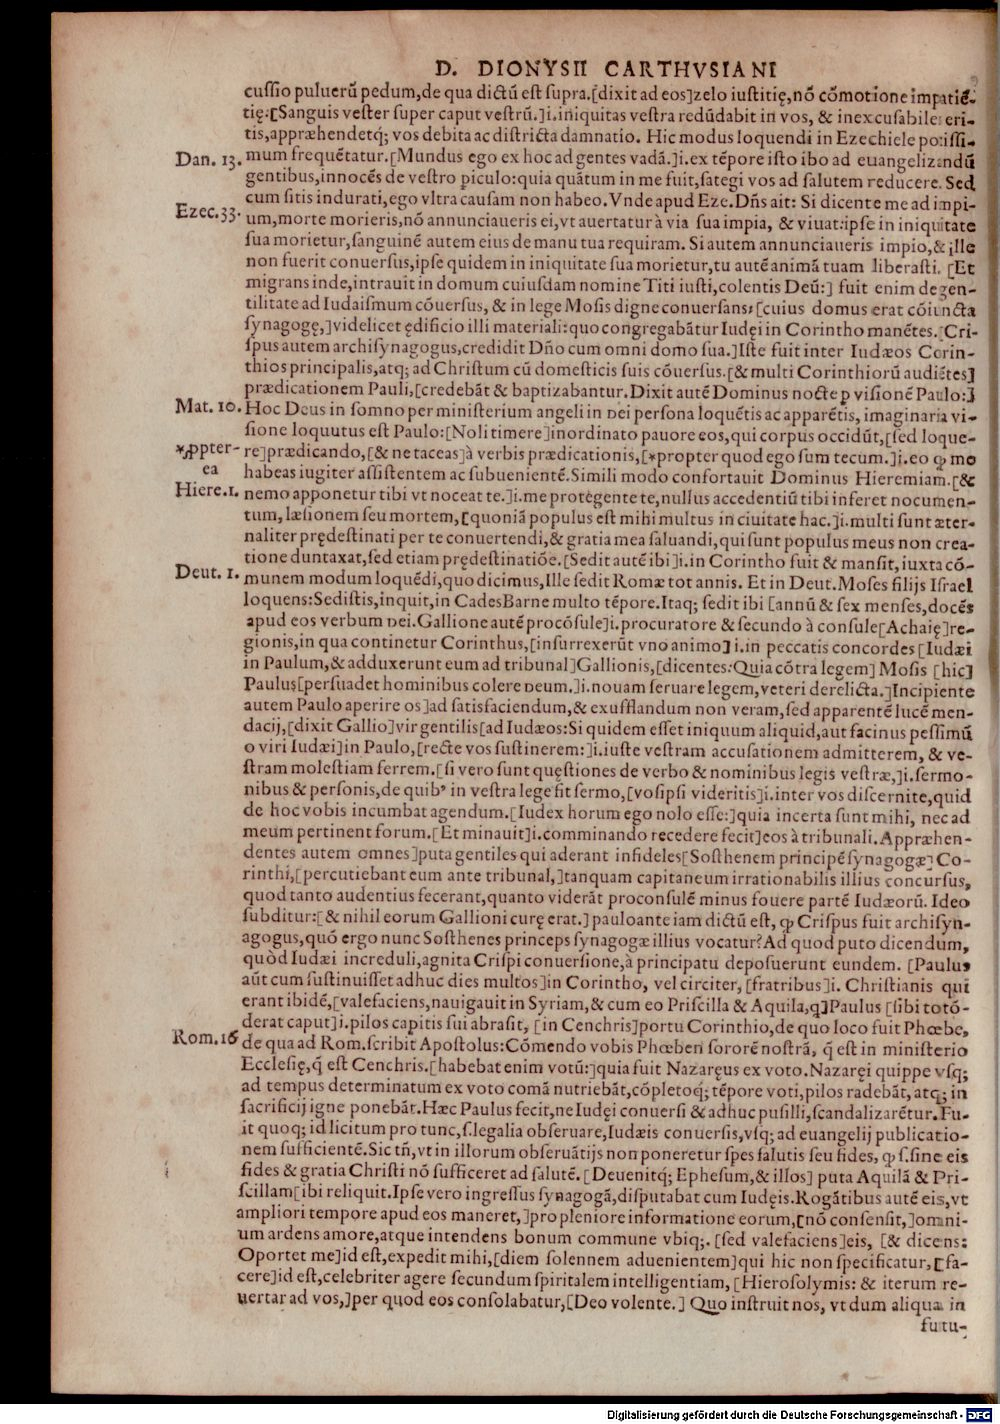 D. DIONYSII CARTHVSIANI
cuſſio puluerũ pedum,de qua dictũ eſt ſupra.[dixit ad eos]zelo iuſtitię,nõ cõmotione impatiẽ-
tię:[Sanguis veſter ſuper caput veſtrũ.]i.iniquitas veſtra redũdabit in vos, & inexcuſabiles eri-
tis,appræhendetq; vos debita ac diſtricta damnatio. Hic modus loquendi in Ezechiele potiſſi-
Dan. 13. mum frequẽtatur.[Mundus ego ex hoc ad gentes vadã.]i.ex tẽpore iſto ibo ad euangelizandũ
gentibus,innocẽs de veſtro piculo:quia quãtum in me fuit,ſategi vos ad ſalutem reducere. Sed
cum ſitis indurati,ego vltra cauſam non habeo. Vnde apud Eze.Dñs ait: Si dicente me ad impi-
Ezec.33. um,morte morieris,nõ annunciaueris ei,vt auertatur à via ſua impia, & viuat:ipſe in iniquitate
ſua morietur,ſanguinẽ autem eius de manu tua requiram. Si autem annunciaueris impio,& ille
non fuerit conuerſus,ipſe quidem in iniquitate ſua morietur,tu autẽ animã tuam liberaſti. [Et
migrans inde,intrauit in domum cuiuſdam nomine Titi iuſti,colentis Deũ:] fuit enim de gen-
tilitate ad Iudaiſmum cõuerſus, & in lege Moſis digne conuerſans:[cuius domus erat cõiuncta
ſynagogę,]videlicet ędificio illi materiali:quo congregabãtur Iudęi in Corintho manẽtes.[Cri-
ſpus autem archiſynagogus,credidit Dño cum omni domo ſua.]Iſte fuit inter Iudæos Corin-
thios principalis,atq; ad Chriſtum cũ domeſticis ſuis cõuerſus.[& multi Corinthiorũ audiẽtes]
prædicationem Pauli,[credebãt & baptizabantur.Dixit autẽ Dominus nocte p viſionẽ Paulo:]
Mat. 10. Hoc Deus in ſomno per miniſterium angeli in Dei perſona loquẽtis ac apparẽtis, imaginaria vi-
ſione loquutus eſt Paulo:[Noli timere]inordinato pauore eos,qui corpus occidũt,[ſed loque-
*,ppter-
ea
re]prædicando,[& ne taceas]à verbis prædicationis,[*propter quod ego ſum tecum.]i.eo ꝙ me
habeas iugiter aſſiſtentem ac ſubuenientẽ.Simili modo confortauit Dominus Hieremiam.[&
Hiere.1. nemo apponetur tibi vt noceat te.]i.me protègente te,nullus accedentiũ tibi inferet nocumen-
tum, læſionem ſeu mortem,[quoniã populus eſt mihi multus in ciuitate hac.]i.multi ſunt æter-
naliter prędeſtinati per te conuertendi,& gratia mea ſaluandi,qui ſunt populus meus non crea-
tione duntaxat,ſed etiam prędeſtinatiõe.[Sedit autẽ ibi]i.in Corintho fuit & manſit,iuxta cõ-
Deut. 1. munem modum loquẽdi,quo dicimus,Ille ſedit Romæ tot annis. Et in Deut.Moſes filijs Iſrael
loquens:Sediſtis,inquit,in Cades Barne multo tẽpore.Itaq; ſedit ibi [annũ & ſex menſes,docẽs
apud eos verbum Dei.Gallione autẽ procõſule]i.procuratore & ſecundo à conſule[Achaię]re-
gionis,in qua continetur Corinthus,[inſurrexerũt vno animo]i.in peccatis concordes [Iudæi
in Paulum,& adduxerunt eum ad tribunal]Gallionis,[dicentes:Quia cõtra legem] Moſis [hic]
Paulus[perſuadet hominibus colere Deum.]i.nouam ſeruare legem,veteri derelicta.]Incipiente
autem Paulo aperire os]ad ſatisfaciendum,& exufflandum non veram,ſed apparentẽ lucẽ men-
dacij,[dixit Gallio]vir gentilis[ad Iudæos:Si quidem eſſet iniquum aliquid,aut facinus peſſimũ
o viri Iudæi]in Paulo,[recte vos ſuſtinerem:]i.iuſte veſtram accuſationem admitterem, & ve-
ſtram moleſtiam ferrem.[ſi vero ſunt quęſtiones de verbo & nominibus legis veſtræ,]i.ſermo-
nibus & perſonis,de quib' in veſtra lege fit ſermo,[voſipſi videritis]i.inter vos diſcernite,quid
de hoc vobis incumbat agendum.[Iudex horum ego nolo eſſe:]quia incerta ſunt mihi, nec ad
meum pertinent forum.[Et minauit]i.comminando recedere fecit]eos à tribunali.Appræhen-
dentes autem omnes]puta gentiles qui aderant infideles[Soſthenem principẽ ſynagogæ]Co-
rinthi,[percutiebant eum ante tribunal,]tanquam capitaneum irrationabilis illius concurſus,
quod tanto audentius fecerant,quanto viderãt proconſulẽ minus fouere partẽ Iudæorũ. Ideo
ſubditur:[& nihil eorum Gallioni curę erat.] pauloante iam dictũ eſt, ꝙ Criſpus fuit archiſyn-
agogus,quõ ergo nunc Soſthenes princeps ſynagogæ illius vocatur?Ad quod puto dicendum,
quòd Iudæi increduli,agnita Criſpi conuerſione,à principatu depoſuerunt eundem. [Paulus
aũt cum ſuſtinuiſſet adhuc dies multos]in Corintho, vel circiter, [fratribus]i. Chriſtianis qui
erant ibidẽ,[valefaciens,nauigauit in Syriam,& cum eo Priſcilla & Aquila,q]Paulus [ſibi totõ-
derat caput]i.pilos capitis ſui abraſit, [in Cenchris]portu Corinthio,de quo loco fuit Phœbe,
Rom.16 de qua ad Rom.ſcribit Apoſtolus:Cõmendo vobis Phœben ſororẽ noſtrã, q̃ eſt in miniſterio
Eccleſię,q̃ eſt Cenchris.[habebat enim votũ:]quia fuit Nazaręus ex voto.Nazaręi quippe vſq;
ad tempus determinatum ex voto comã nutriebãt,cõpletoq; tẽpore voti,pilos radebãt,atq; in
ſacrificij igne ponebãt.Hæc Paulus fecit,ne Iudęi conuerſi & adhuc puſilli,ſcandalizarẽtur.Fu-
it quoq; id licitum pro tunc,ſ.legalia obſeruare,Iudæis conuerſis,vſq; ad euangelij publicatio-
nem ſufficientẽ.Sic tñ,vt in illorum obſeruãtijs non poneretur ſpes ſalutis ſeu fides, ꝙ ſ.ſine eis
fides & gratia Chriſti nõ ſufficeret ad ſalutẽ.[Deuenitq; Epheſum,& illos] puta Aquilã & Pri-
ſcillam[ibi reliquit.Ipſe vero ingreſſus ſynagogã,diſputabat cum Iudęis.Rogãtibus autẽ eis,vt
ampliori tempore apud eos maneret,]pro pleniore informatione eorum,[nõ conſenſit,]omni-
um ardens amore,atque intendens bonum commune vbiq;.[ſed valefaciens]eis, [& dicens:
Oportet me]id eſt,expedit mihi,[diem ſolennem aduenientem]qui hic non ſpecificatur,[fa-
cere]id eſt,celebriter agere ſecundum ſpiritalem intelligentiam, [Hieroſolymis: & iterum re-
uertar ad vos,]per quod eos conſolabatur,[Deo volente.] Quo inſtruit nos, vt dum aliqua in
futu-
Digitalisierung gefördert durch die Deutsche Forschungsgemeinschaft - DFG